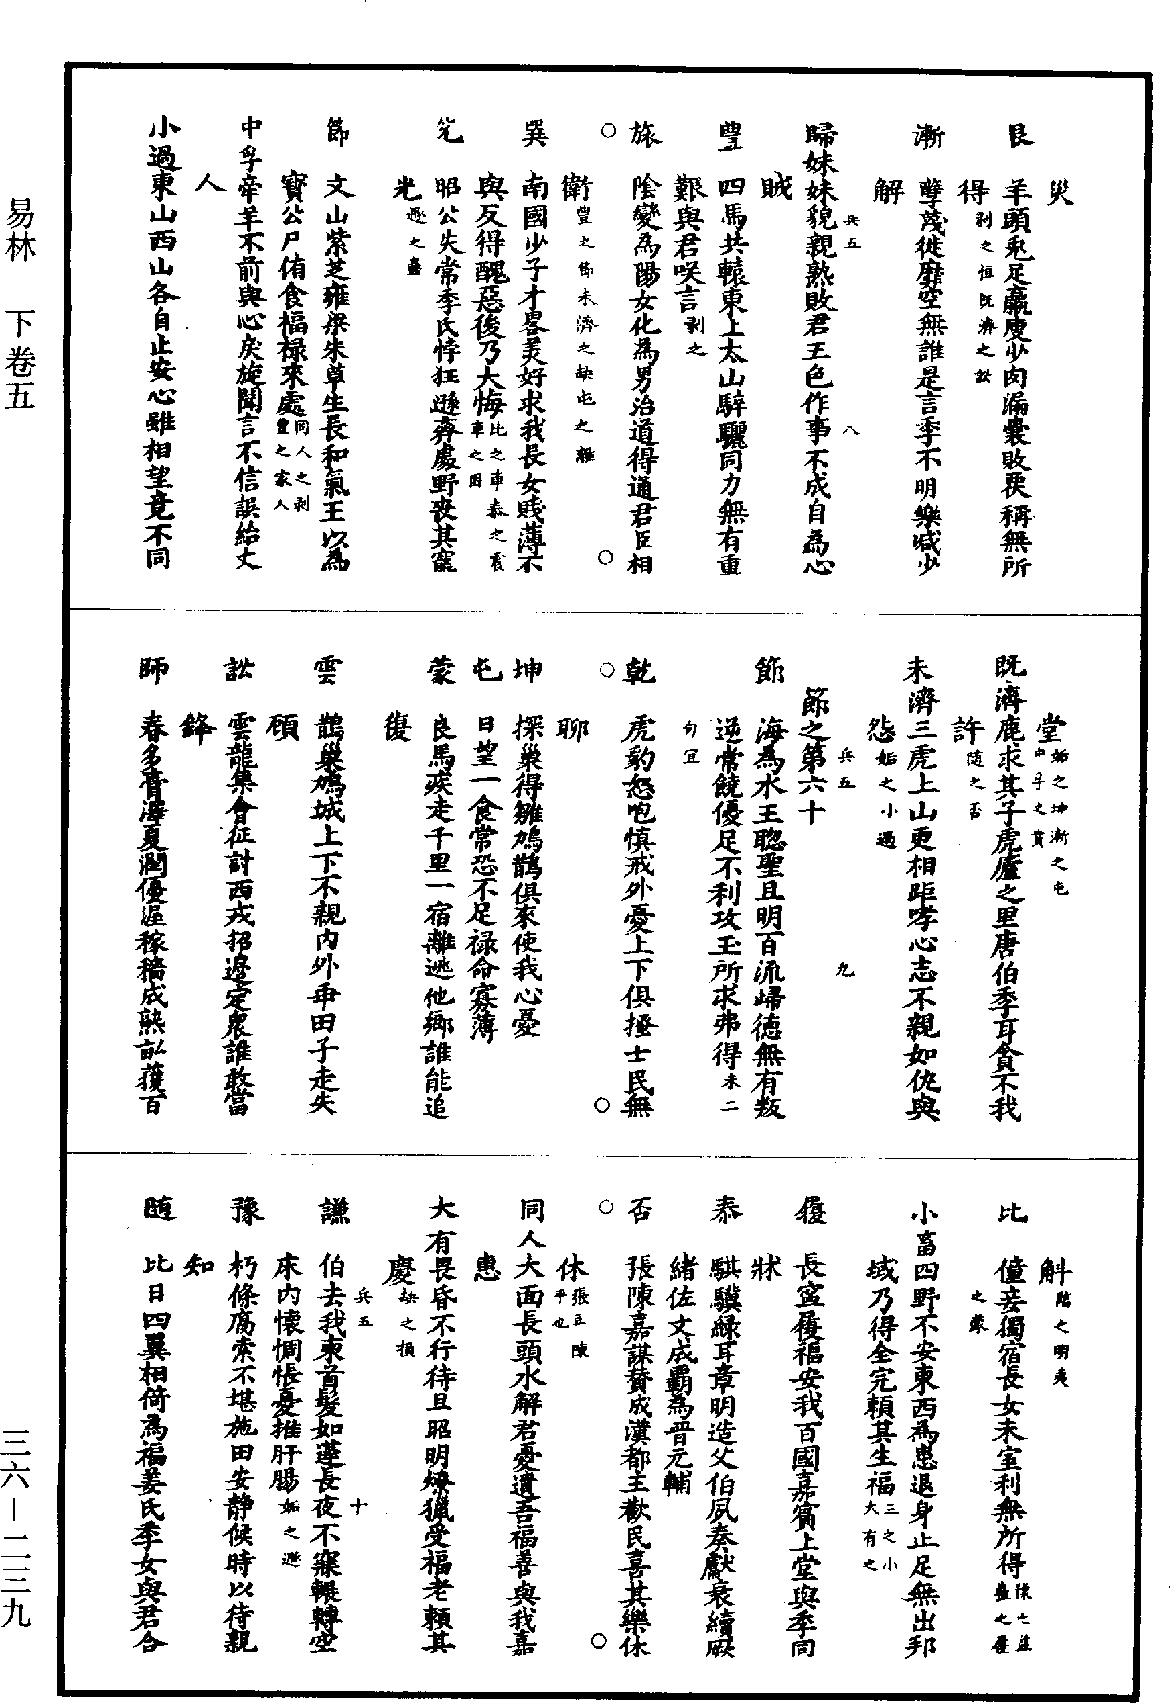 易林　下卷五
三六—二三九
災
艮　羊頭兎足羸瘦少肉漏囊敗粟稱無所
得剥之恒既濟之訟
漸　孽茂徙靡空無誰是言季不明樂減少
解
兵五　八
歸妹妹貌親熟敗君王色作事不成自為心
賊
豐　四馬共轅東上太山騂驪同力無有重
艱與君咲言剥之
旅　陰變為陽女化為男治道得通君臣相
○　○
衛豐之節未濟之缺屯之離
巽　南國少子才畧美好求我長女賤薄不
與反得醜惡後乃大悔比之車泰之震車之困
兊　昭公失常季氏悖狂遜齊處野喪其寵
光遯之蠱
節　文山紫芝雍梁朱草生長和氣王以為
寶公尸侑食福禄來處同人之剥豐之家人
中孚帝羊不前與心戾旋聞言不信誤給丈
人
小過東山西山各自止安心雖相望竟不同
堂姤之坤漸之屯中孚之賁
既濟鹿求其子虎廬之里唐伯季耳貪不我
許隨之否
未濟三虎上山更相距哮心志不親如仇與
怨姤之小過
兵五　九
節之第六十
節　海為水王聰聖且明百流歸徳無有叛
逆常饒優足不利攻玉所求弗得未二句宜
乾　虎豹怒咆慎戒外憂上下俱擾士民無
○　○
聊
坤　探巢得雛鳩鵲俱來使我心憂
屯　日望一食常恐不足禄命寡薄
蒙　良馬疾走千里一宿離逃他鄉誰能追
復
雲　鵲巢鳩城上下不親内外乖田子走失
願
訟　雲龍集會征討西戎招邊定衆誰敢當
鋒
師　春多膏澤夏潤優渥稼穡成熟畝穫百
斛臨之明夷
比　僮妾獨宿長女未室利無所得
之蒙
小畜四野不安東西為患退身止足無出邦
域乃得全完賴其生福三之小大有之
履　長寧履福安我百國嘉賓上堂與季同
牀
泰　騏驥緑耳章明造父伯夙奏獻衰續厥
緒佐文成霸為晉元輔
否　張陳嘉謀賛成漢都主歡民喜其樂休
○　○
休張良陳平也
同人大面長頭水解君憂遺吾福善與我嘉
惠
大有畏昏不行待旦昭明燎獵受福老賴其
慶缺之損
兵五　十
謙　伯去我東首髮如蓬長夜不寐輾轉空
床内懷惆悵憂摧肝腸姤之遯
豫　朽條腐索不堪施田安静候時以待親
知
隨　比目四翼相倚為福姜氏季女與君合